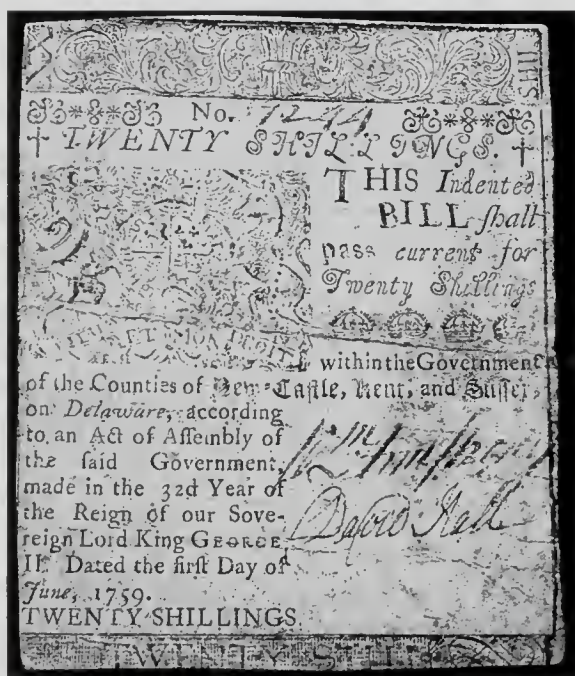 SHIL
No. 7244
TWENTY SHILLINGS.
THIS Indented
BILL ſhall
paſs current for
Twenty Shillings
ET MON DROIT
within the Government
of the Counties of New-Caſtle, Kent, and Suſſex,
on Delaware, according
to an Act of Aſſembly of
the ſaid Government,
made in the 32d Year of
the Reign of our Sove-
reign Lord King GEORGE
II. Dated the firſt Day of
June, 1759.
TWENTY SHILLINGS.
Wm
David Hall